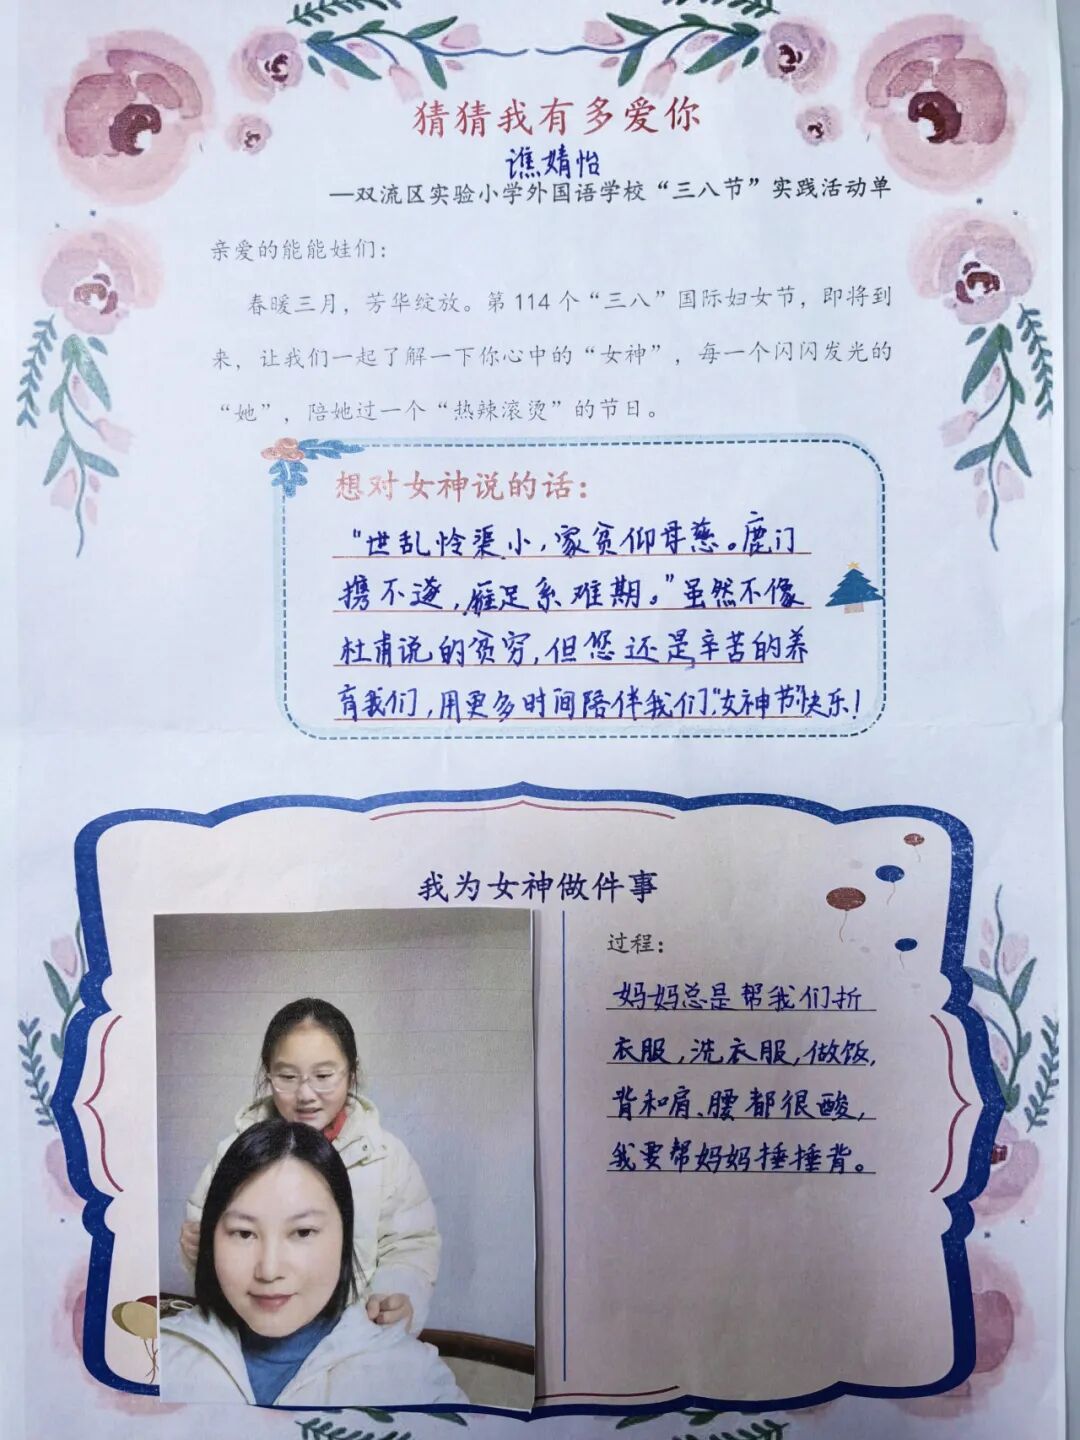 猜猜我有多爱你
谯婧怡
—双流区实验小学外国语学校“三八节”实践活动单
亲爱的能能娃们：
春暖三月，芳华绽放。第114个“三八”国际妇女节，即将到
来，让我们一起了解一下你心中的“女神”，每一个闪闪发光的
“她”，陪她过一个“热辣滚烫”的节日。
想对女神说的话：
“世乱怜渠小，家贫仰母慈。鹿门
携不遂，雁足系难期。”虽然不像
杜甫说的贫穷，但您还是辛苦的养
育我们，用更多时间陪伴我们，“女神节”快乐！
我为女神做件事
过程：
妈妈总是帮我们折
衣服，洗衣服，做饭，
背和肩、腰都很酸，
我要帮妈妈捶捶背。